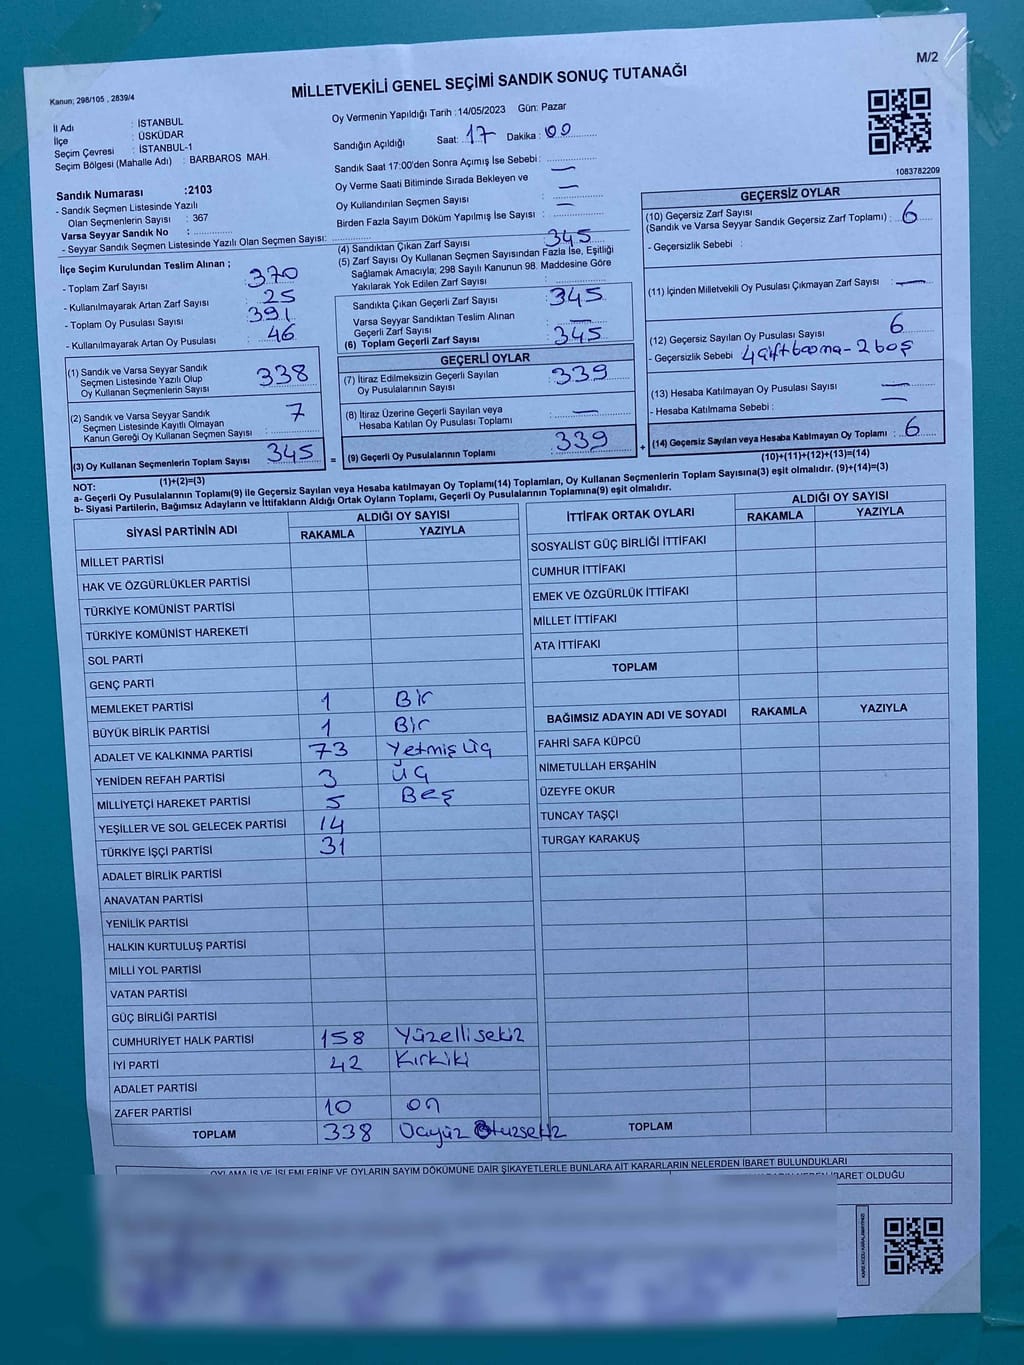 M/2
Kanun; 298/105 , 2839/4
MİLLETVEKİLİ GENEL SEÇİMİ SANDIK SONUÇ TUTANAĞI
İl Adı : İSTANBUL
İlçe : ÜSKÜDAR
Seçim Çevresi : İSTANBUL-1
Seçim Bölgesi (Mahalle Adı) : BARBAROS MAH.
Sandık Numarası :2103
- Sandık Seçmen Listesinde Yazılı
Olan Seçmenlerin Sayısı : 367
Varsa Seyyar Sandık No :
- Seyyar Sandık Seçmen Listesinde Yazılı Olan Seçmen Sayısı:
Oy Vermenin Yapıldığı Tarih :14/05/2023 Gün: Pazar
Sandığın Açıldığı Saat: 17 Dakika : 00
Sandık Saat 17:00'den Sonra Açımış İse Sebebi : —
Oy Verme Saati Bitiminde Sırada Bekleyen ve —
Oy Kullandırılan Seçmen Sayısı : —
Birden Fazla Sayım Döküm Yapılmış İse Sayısı :
1083782209
İlçe Seçim Kurulundan Teslim Alınan ;
- Toplam Zarf Sayısı : 370
- Kullanılmayarak Artan Zarf Sayısı : 25
- Toplam Oy Pusulası Sayısı : 391
- Kullanılmayarak Artan Oy Pusulası : 46
(1) Sandık ve Varsa Seyyar Sandık
Seçmen Listesinde Yazılı Olup
Oy Kullanan Seçmenlerin Sayısı : 338
(2) Sandık ve Varsa Seyyar Sandık
Seçmen Listesinde Kayıtlı Olmayan
Kanun Gereği Oy Kullanan Seçmen Sayısı : 7
(3) Oy Kullanan Seçmenlerin Toplam Sayısı : 345
(1)+(2)=(3)
(4) Sandıktan Çıkan Zarf Sayısı : 345
(5) Zarf Sayısı Oy Kullanan Seçmen Sayısından Fazla İse, Eşitliği
Sağlamak Amacıyla; 298 Sayılı Kanunun 98. Maddesine Göre
Yakılarak Yok Edilen Zarf Sayısı :
Sandıkta Çıkan Geçerli Zarf Sayısı : 345
Varsa Seyyar Sandıktan Teslim Alınan
Geçerli Zarf Sayısı : —
(6) Toplam Geçerli Zarf Sayısı : 345
GEÇERLİ OYLAR
(7) İtiraz Edilmeksizin Geçerli Sayılan
Oy Pusulalarının Sayısı : 339
(8) İtiraz Üzerine Geçerli Sayılan veya
Hesaba Katılan Oy Pusulası Toplamı : —
= (9) Geçerli Oy Pusulalarının Toplamı : 339 +
GEÇERSİZ OYLAR
(10) Geçersiz Zarf Sayısı
(Sandık ve Varsa Seyyar Sandık Geçersiz Zarf Toplamı) : 6
- Geçersizlik Sebebi :
(11) İçinden Milletvekili Oy Pusulası Çıkmayan Zarf Sayısı : —
(12) Geçersiz Sayılan Oy Pusulası Sayısı : 6
- Geçersizlik Sebebi : 4 çift basma - 2 boş
(13) Hesaba Katılmayan Oy Pusulası Sayısı : —
- Hesaba Katılmama Sebebi : —
(14) Geçersiz Sayılan veya Hesaba Katılmayan Oy Toplamı : 6
(10)+(11)+(12)+(13)=(14)
NOT:
a- Geçerli Oy Pusulalarının Toplamı(9) ile Geçersiz Sayılan veya Hesaba katılmayan Oy Toplamı(14) Toplamları, Oy Kullanan Seçmenlerin Toplam Sayısına(3) eşit olmalıdır. (9)+(14)=(3)
b- Siyasi Partilerin, Bağımsız Adayların ve İttifakların Aldığı Ortak Oyların Toplamı, Geçerli Oy Pusulalarının Toplamına(9) eşit olmalıdır.
SİYASİ PARTİNİN ADI ALDIĞI OY SAYISI
RAKAMLA YAZIYLA
MİLLET PARTİSİ
HAK VE ÖZGÜRLÜKLER PARTİSİ
TÜRKİYE KOMÜNİST PARTİSİ
TÜRKİYE KOMÜNİST HAREKETİ
SOL PARTİ
GENÇ PARTİ
MEMLEKET PARTİSİ 1 Bir
BÜYÜK BİRLİK PARTİSİ 1 Bir
ADALET VE KALKINMA PARTİSİ 73 Yetmiş üç
YENİDEN REFAH PARTİSİ 3 üç
MİLLİYETÇİ HAREKET PARTİSİ 5 Beş
YEŞİLLER VE SOL GELECEK PARTİSİ 14
TÜRKİYE İŞÇİ PARTİSİ 31
ADALET BİRLİK PARTİSİ
ANAVATAN PARTİSİ
YENİLİK PARTİSİ
HALKIN KURTULUŞ PARTİSİ
MİLLİ YOL PARTİSİ
VATAN PARTİSİ
GÜÇ BİRLİĞİ PARTİSİ
CUMHURİYET HALK PARTİSİ 158 Yüzellisekiz
İYİ PARTİ 42 Kırkiki
ADALET PARTİSİ
ZAFER PARTİSİ 10 on
TOPLAM 338 Üçyüz Otuzsekiz
İTTİFAK ORTAK OYLARI ALDIĞI OY SAYISI
RAKAMLA YAZIYLA
SOSYALİST GÜÇ BİRLİĞİ İTTİFAKI
CUMHUR İTTİFAKI
EMEK VE ÖZGÜRLÜK İTTİFAKI
MİLLET İTTİFAKI
ATA İTTİFAKI
TOPLAM
BAĞIMSIZ ADAYIN ADI VE SOYADI RAKAMLA YAZIYLA
FAHRİ SAFA KÜPCÜ
NİMETULLAH ERŞAHİN
ÜZEYFE OKUR
TUNCAY TAŞÇI
TURGAY KARAKUŞ
TOPLAM
OYLAMA İŞ VE İŞLEMLERİNE VE OYLARIN SAYIM DÖKÜMÜNE DAİR ŞİKAYETLERLE BUNLARA AİT KARARLARIN NELERDEN İBARET BULUNDUKLARI
İBARET OLDUĞU